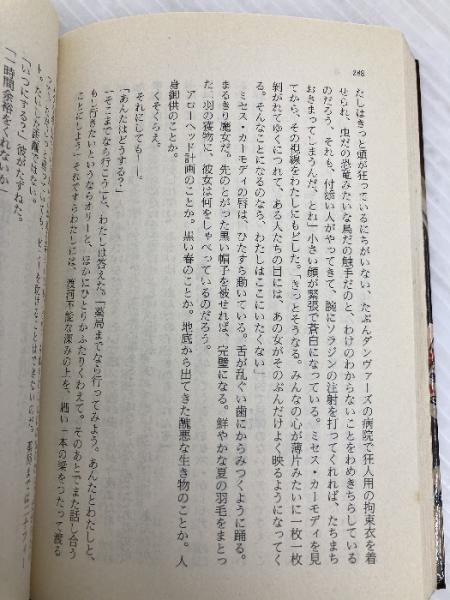 288
たしはきっと頭が狂っているにちがいない、たぶんダンヴァーズの病院で狂人用の拘束衣を着
せられ、虫だの恐竜みたいな鳥だの触手だのと、わけのわからないことをわめきちらしている
のだろう、それも、付添い人がやってきて、腕にソラジンの注射を打ってくれれば、たちまち
おさまってしまうんだ、とね」小さい顔が緊張で蒼白になっている。ミセス・カーモディを見
てから、その視線をわたしにもどした。「きっとそうなる。みんなの心が薄片みたいに一枚一枚
剝がれてゆくにつれて、ある人たちの目には、あの女がそのぶんだけよく映るようになってく
る。そんなことになるのなら、わたしはここにいたくない」
ミセス・カーモディの唇は、ひたすら動いている。舌が乱ぐい歯にからみつくように踊る。
まるきり魔女だ。先のとがった黒い帽子を被せれば、完璧になる。鮮やかな夏の羽毛をまとっ
た二羽の獲物に、彼女は何をしゃべっているのだろう。
アローヘッド計画のことか。黒い春のことか。地底から出てきた醜悪な生き物のことか。人
身御供のことか。
くそくらえ。
それにしても――。
「あんたはどうする?」
「そこまでなら行こう」と、わたしは答えた。「薬局までなら行ってみよう。あんたとわたしと、
もし行きたいというならオリーと、ほかにひとりかふたりくわえて。そのあとでまた話し合う
ことにしよう」それですらわたしには、渡河不能な深みの上を、細い一本の梁をつたって渡る
「いつにする?」彼がたずねた。
「一時間余裕をくれないか」